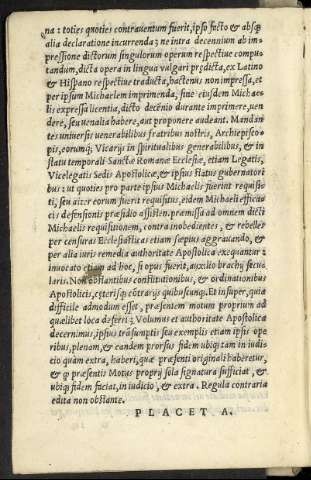 na: toties quoties contrauentum fuerit, ipso facto & absq;
alia declaratione incurrenda: ne intra decennium ab im-
pressione dictorum singulorum operum respectiue compu-
tandum, dicta opera in lingua vulgari prędicta, ex Latino
& Hispano respectiue traducta, hactenus non impressa, et
per ipsum Michaelem imprimenda, sine eiusdem Michae-
lis expressa licentia, dicto decēnio durante imprimere, uen
dere, seu uenalia habere, aut proponere audeant. Mandan
tes uniuersis uenerabilibus fratribus nostris, Archiepisco-
pis, eorumq; Vicarijs in spiritualibus generalibus, & in
statu temporali Sanctæ Romanæ Ecclesiæ, etiam Legatis,
Vicelegatis Sedis Apostolicæ, & ipsius status gubernatori
bus: ut quoties pro parte ipsius Michaelis fuerint requisi-
ti, seu alter eorum fuerit requisitus, eidem Michaeli efficac
cis defensionis præsidio assisten. præmissa ad omnem dicti
Michaelis requisitionem, contra inobedientes, & rebelles
per censuras Ecclesiasticas etiam sæpius aggrauando, &
per alia iuris remedia authoritate Apostolica exequantur:
inuocato etiam ad hoc, si opus fuerit, auxilio brachij secu-
laris. Non obstantibus constitutionibus, & ordinationibus
Apostolicis, cęterisq; cōtrarijs quibuscunq;. Et insuper, quia
difficile admodum esset, præsentem motum proprium ad
quælibet loca deferri: Volumus et authoritate Apostolica
decernimus, ipsius trāsumptis seu exemplis etiam ipsis ope
ribus, plenam, & eandem prorsus fidem ubiq; tam in iudi-
cio quàm extra, haberi, quæ præsenti originali haberetur,
& q præsentis Motus proprij sola signatura sufficiat, &
ubiq; fidem faciat, in iudicio, & extra. Regula contraria
edita non obstante.
PLACET A.